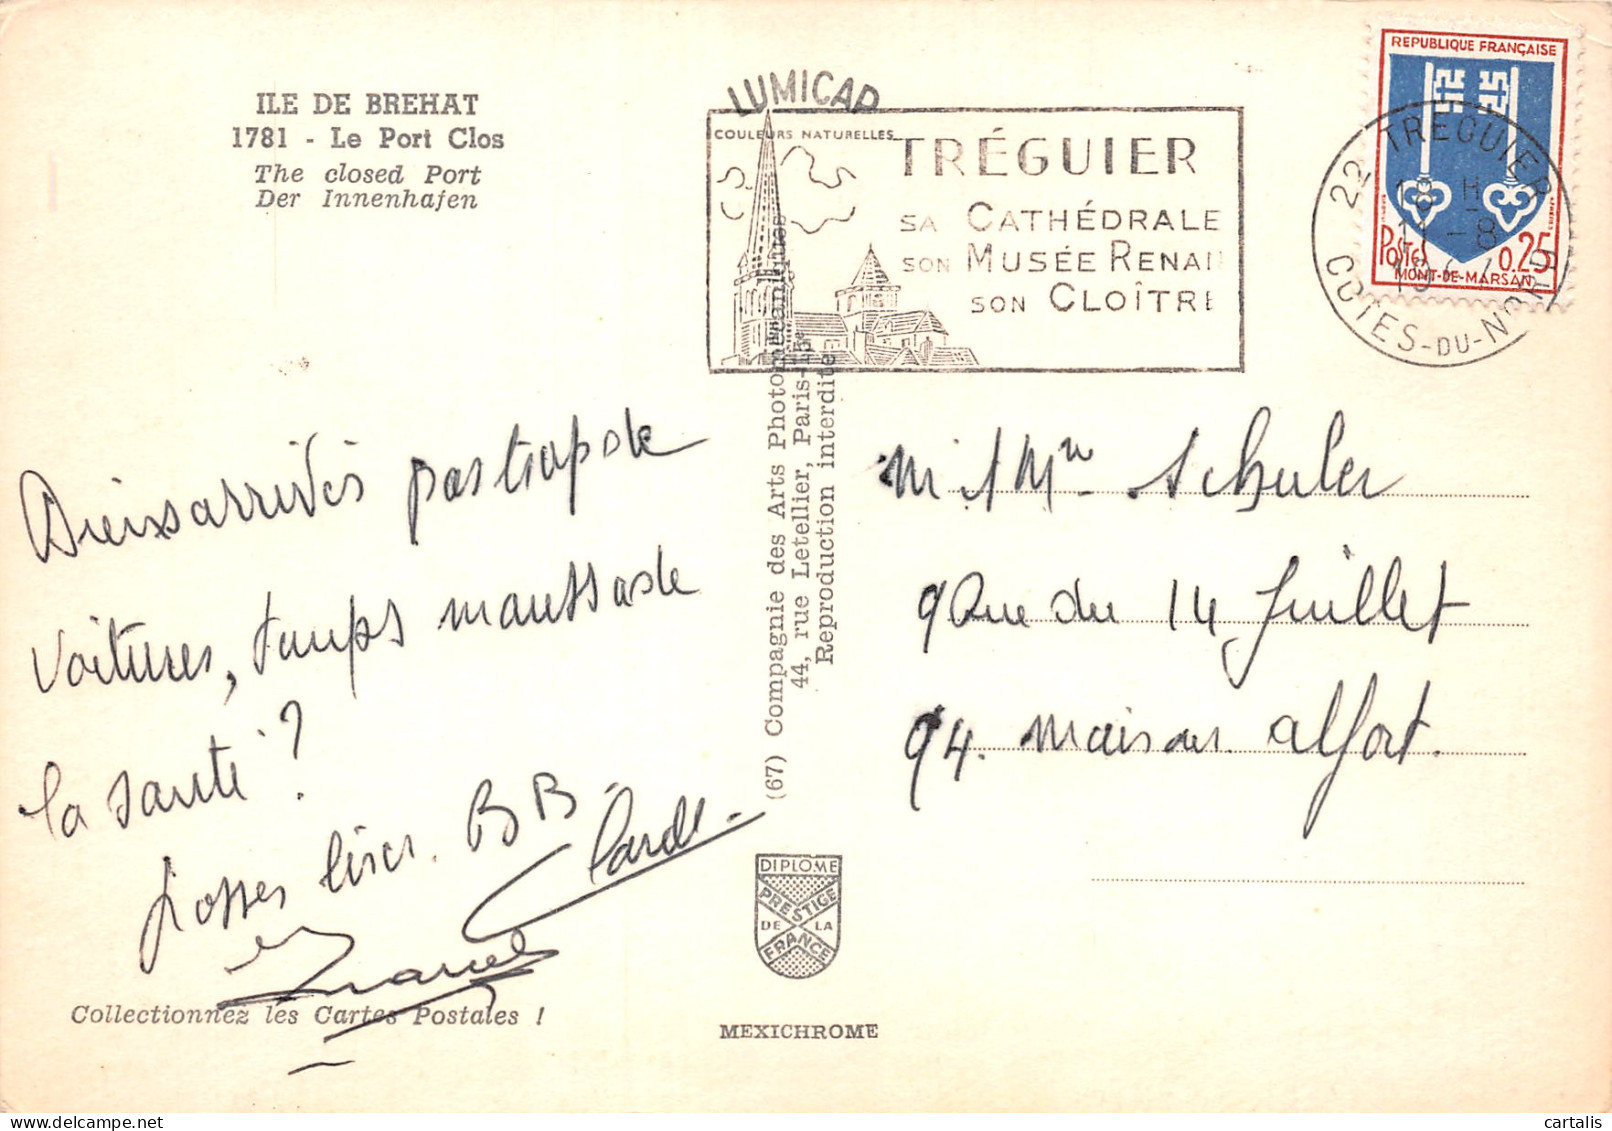 ILE DE BREHAT
1781 - Le Port Clos
The closed Port
Der Innenhafen
LUMICAP
COULEURS NATURELLES
TRÉGUIER
SA CATHÉDRALE
SON MUSÉE RENAN
SON CLOÎTRE
REPUBLIQUE FRANÇAISE
POSTES 0.25
MONT-DE-MARSAN
22 TREGUIER
18 H
-8
19
COTES-DU-NORD
Bien arrivés pas trop de
voitures, temps maussade
la santé ?
grosses bises. BB
Marcel
M et Mme Schuler
9 Rue du 14 Juillet
94. Maisons Alfort.
(67) Compagnie des Arts Photomécaniques
44, rue Letellier, Paris-15e
Reproduction interdite
DIPLOME
PRESTIGE
DE LA
FRANCE
Collectionnez les Cartes Postales !
MEXICHROME
cartalis
delcampe.net